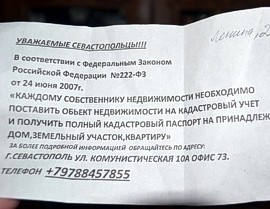 Ленина, 2
УВАЖАЕМЫЕ СЕВАСТОПОЛЬЦЫ!!!!
В соответствии с Федеральным Законом
Российской Федерации №222-ФЗ
от 24 июня 2007г.
«КАЖДОМУ СОБСТВЕННИКУ НЕДВИЖИМОСТИ НЕОБХОДИМО
ПОСТАВИТЬ ОБЬЕКТ НЕДВИЖИМОСТИ НА КАДАСТРОВЫЙ УЧЕТ
И ПОЛУЧИТЬ ПОЛНЫЙ КАДАСТРОВЫЙ ПАСПОРТ НА ПРИНАДЛЕЖ
ДОМ,ЗЕМЕЛЬНЫЙ УЧАСТОК,КВАРТИРУ»
ЗА БОЛЕЕ ПОДРОБНОЙ ИНФОРМАЦИЕЙ ОБРАЩАЙТЕСЬ ПО АДРЕСУ:
Г.СЕВАСТОПОЛЬ УЛ. КОМУНИСТИЧЕСКАЯ 10А ОФИС 73.
ТЕЛЕФОН +79788457855